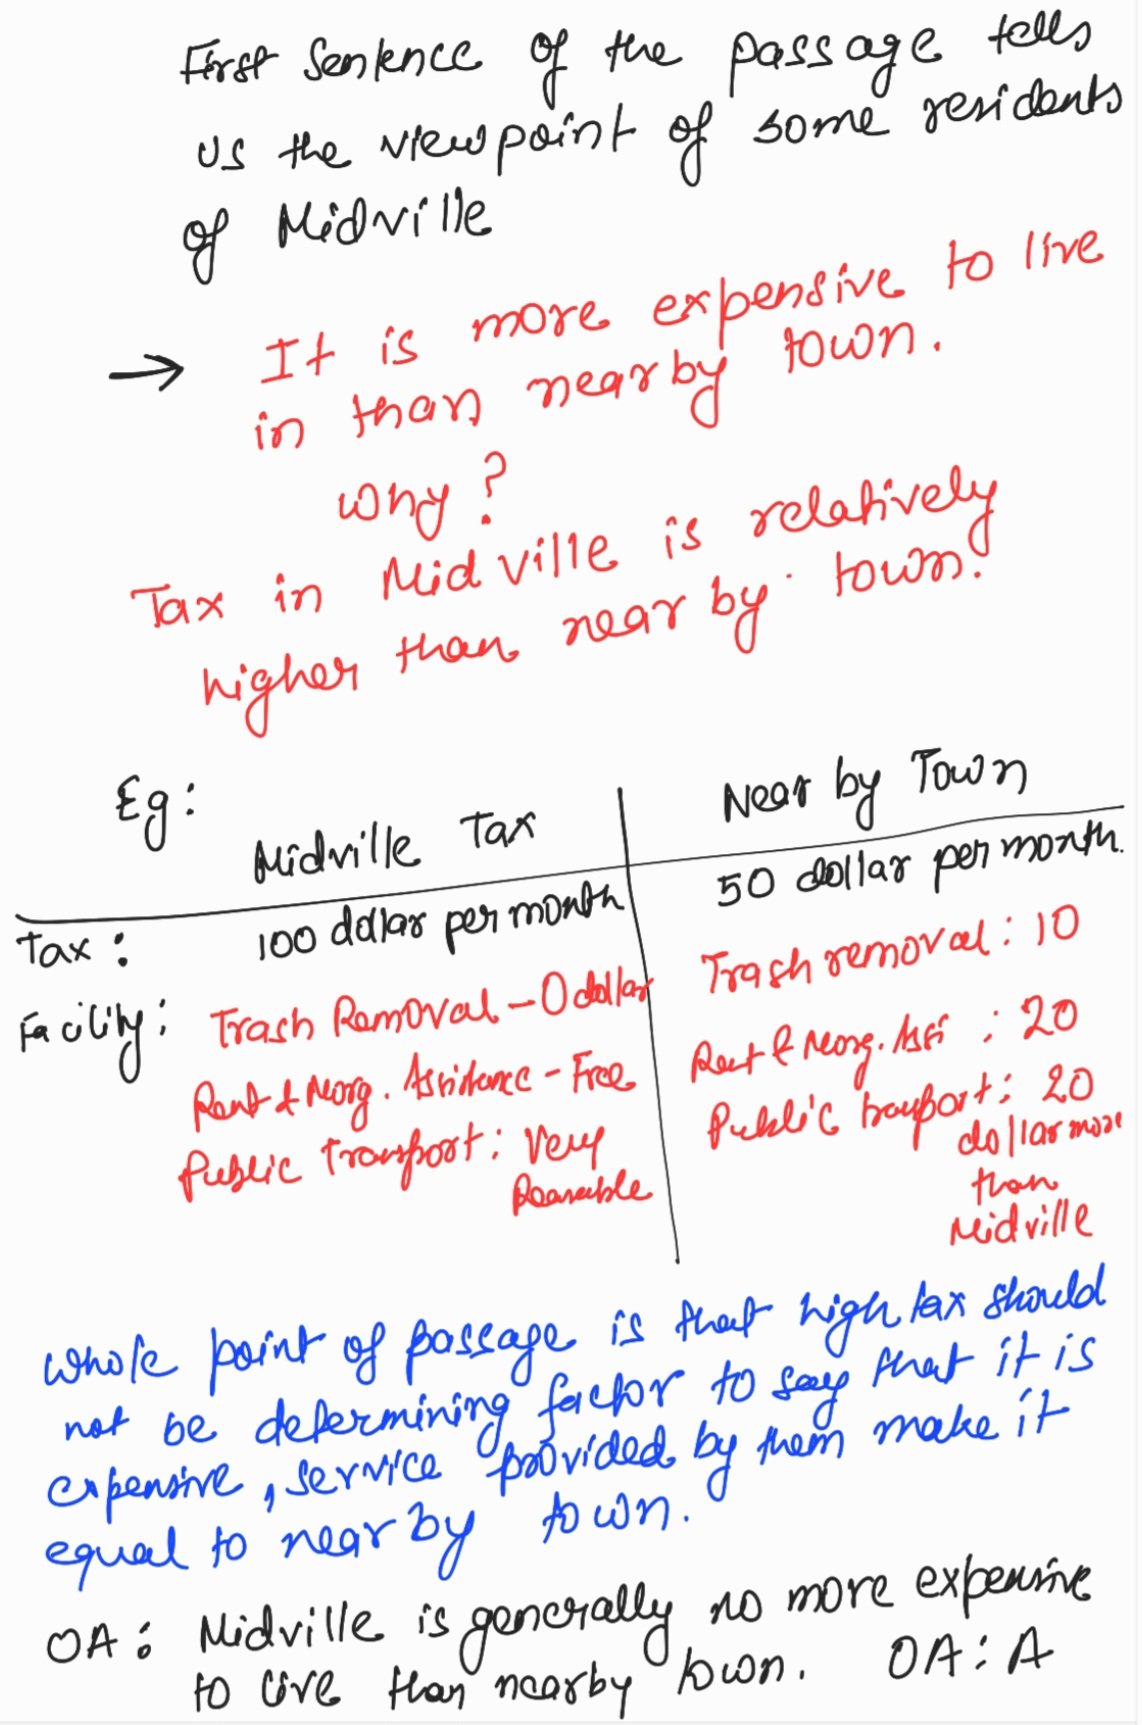 First Sentence of the passage tells
us the viewpoint of some residents
of Midville
→ It is more expensive to live
in than nearby town.
Why?
Tax in Midville is relatively
higher than near by town.
Eg:
Midville Tax Near by Town
Tax: 100 dollar per month 50 dollar per month.
Facility: Trash Removal - 0 dollar Trash removal: 10
Rent & Morg. Assistance - Free Rent & Morg. Assi : 20
Public Transport: Very Public transport: 20
Reasonable dollar more
than
Midville
Whole point of passage is that high tax should
not be determining factor to say that it is
expensive, service provided by them make it
equal to near by town.
OA: Midville is generally no more expensive
to live than nearby town. OA: A